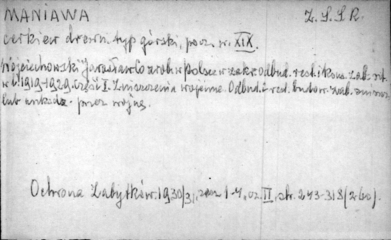 MANIAWA Z.S.S.R.
cerkiew drewn. typ górski, pocz. w. XIX.
Wojciechowski Jarosław Co zrob. w Polsce w zakr. odbud. rest. i kons. zab. szt.
w l. 1919-1929. Część I. Zniszczenia wojenne. Odbud. i rest. budow. zab. zniszcz.
lub uszkodz. przez wojnę.
Ochrona Zabytków. 1930/31, zesz 1-4, cz. II, str. 243-318 (260).